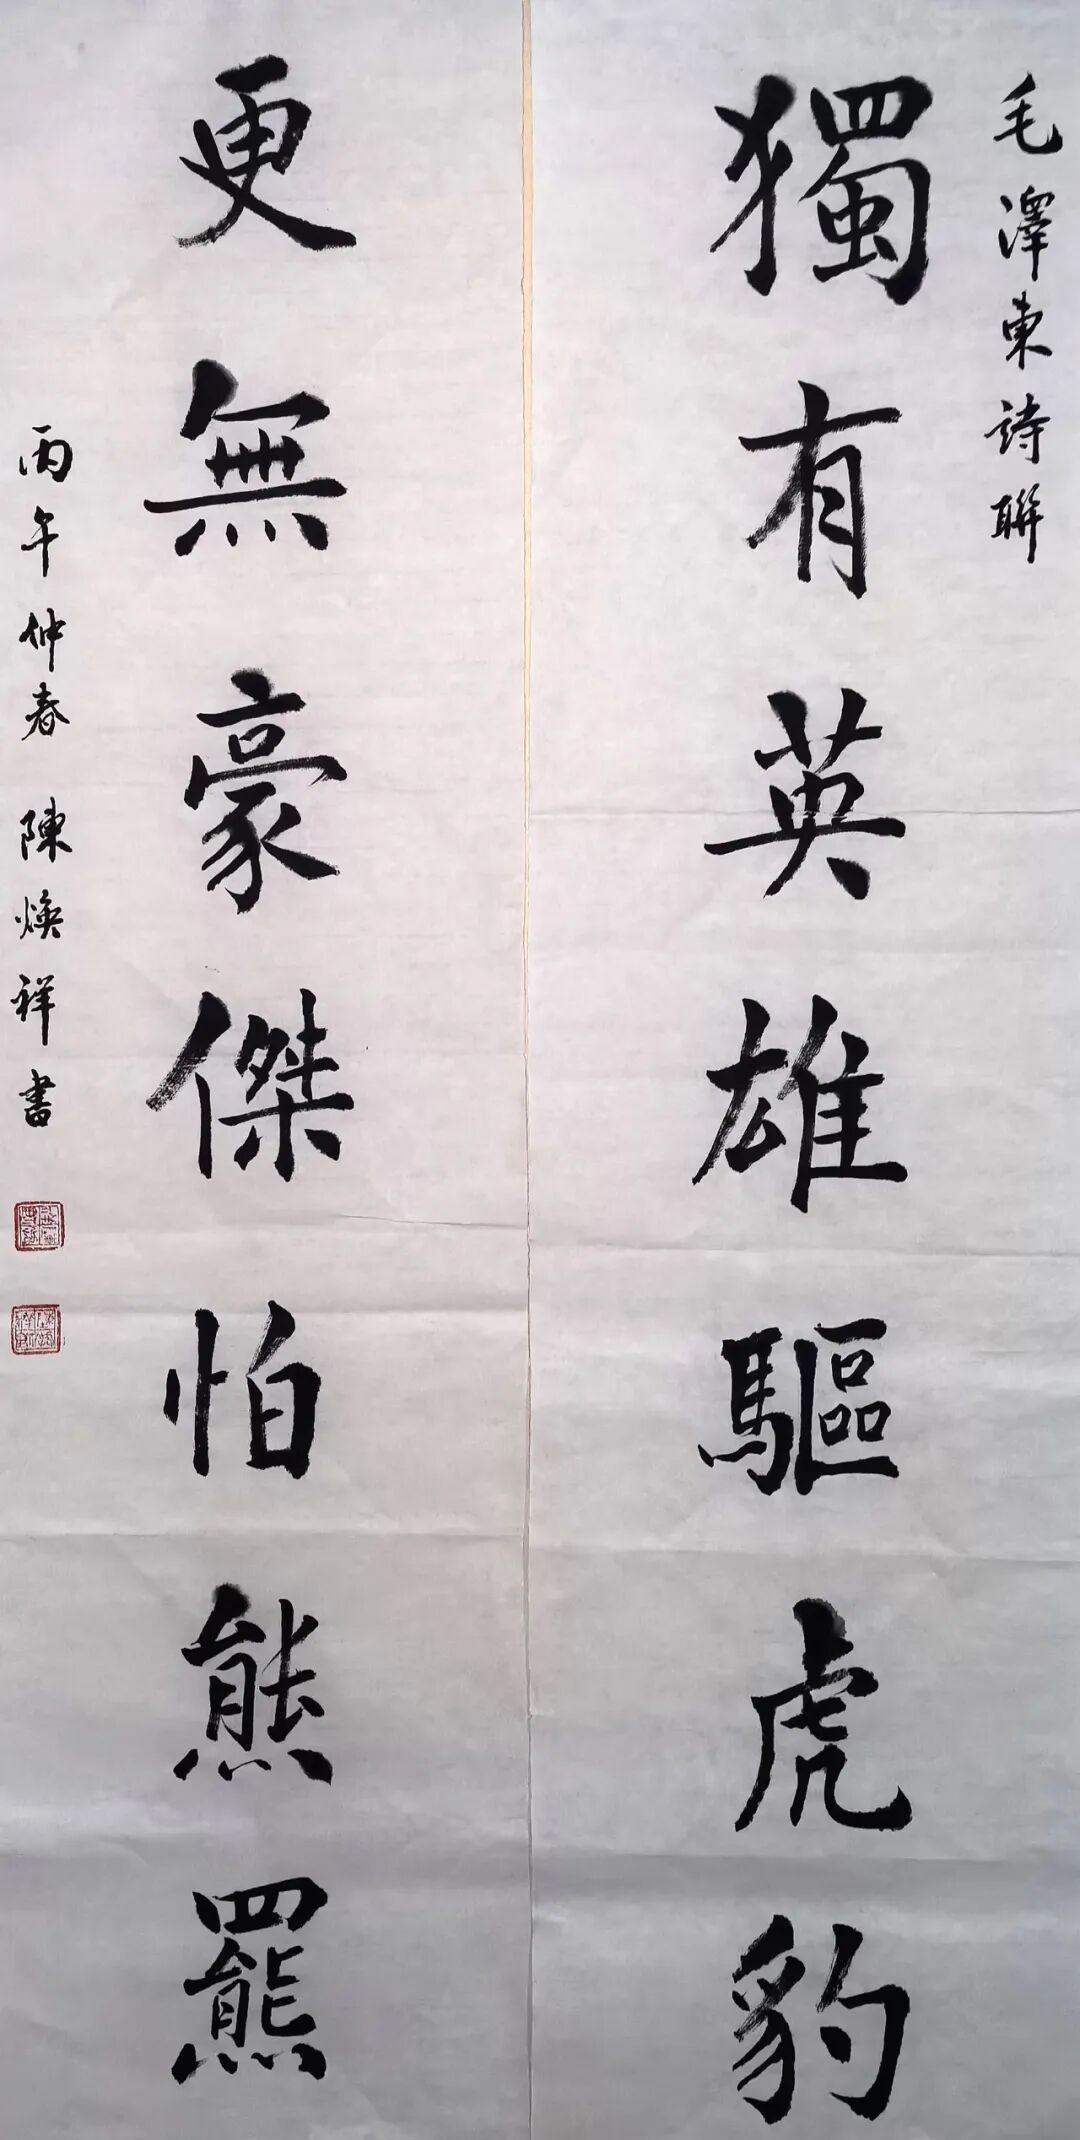 毛澤東詩聯
獨有英雄驅虎豹
更無豪傑怕熊羆
丙午仲春 陳煥祥書